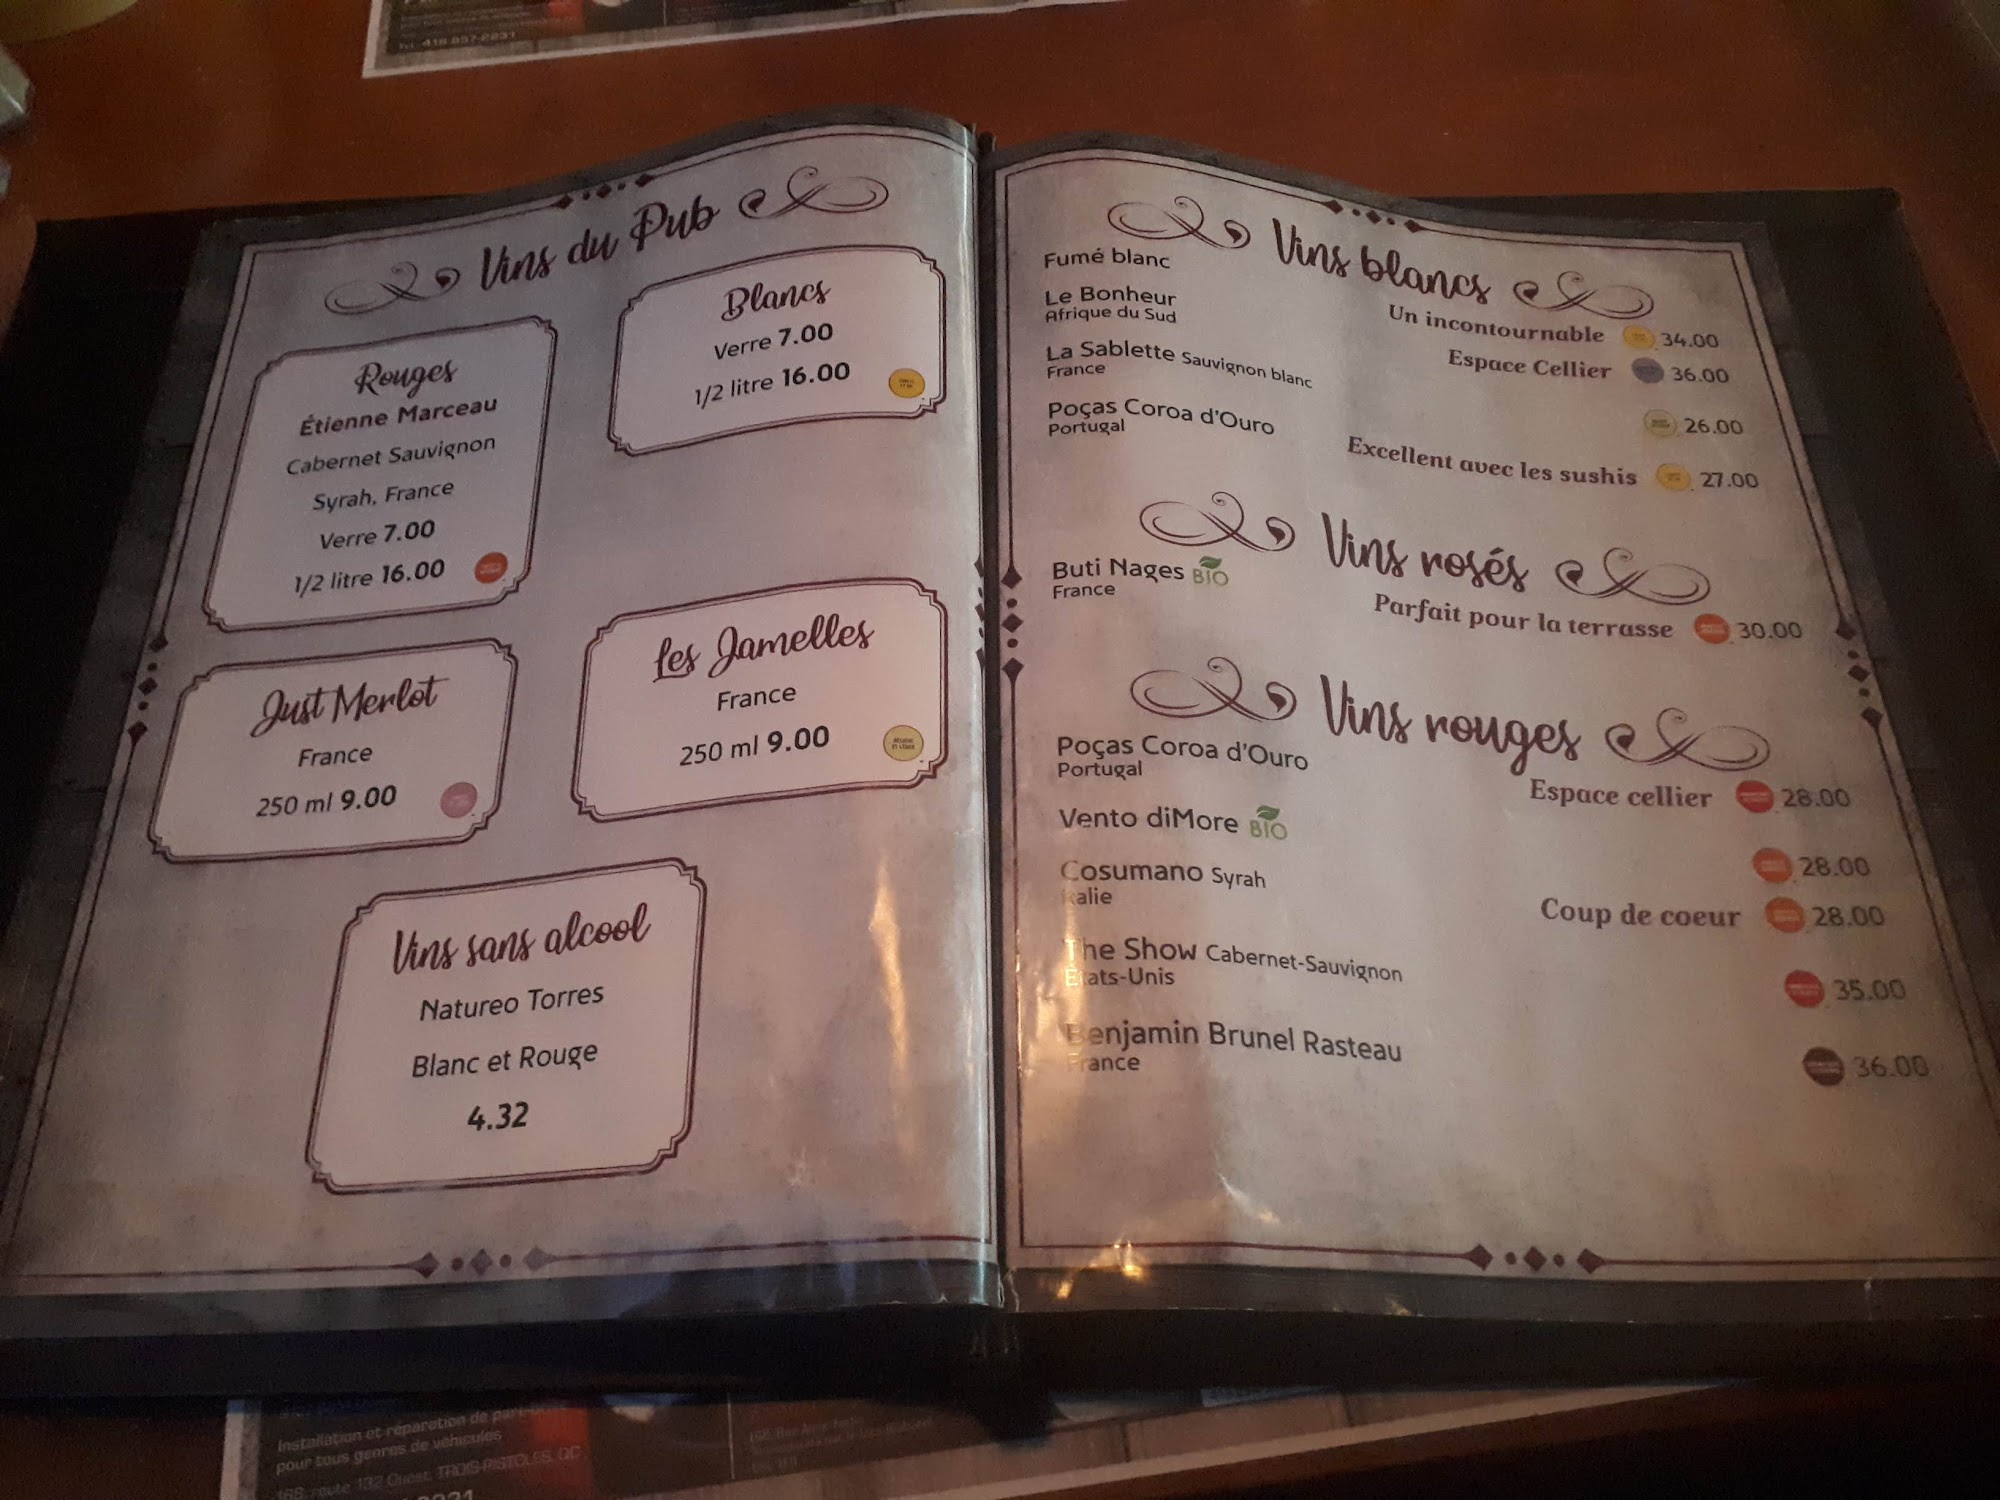 Tél.: 418 857-2231
Vins du Pub
Rouges
Étienne Marceau
Cabernet Sauvignon
Syrah, France
Verre 7.00
1/2 litre 16.00
Blancs
Verre 7.00
1/2 litre 16.00
Just Merlot
France
250 ml 9.00
Les Jamelles
France
250 ml 9.00
Vins sans alcool
Natureo Torres
Blanc et Rouge
4.32
Vins blancs
Fumé blanc
Un incontournable 34.00
Le Bonheur
Afrique du Sud
Espace Cellier 36.00
La Sablette Sauvignon blanc
France
26.00
Poças Coroa d'Ouro
Portugal
Excellent avec les sushis 27.00
Vins rosés
Buti Nages BIO
France
Parfait pour la terrasse 30.00
Vins rouges
Poças Coroa d'Ouro
Portugal
Espace cellier 28.00
Vento diMore BIO
28.00
Cosumano Syrah
Italie
Coup de coeur 28.00
The Show Cabernet-Sauvignon
États-Unis
35.00
Benjamin Brunel Rasteau
France
36.00
Installation et réparation de
pour tous genres de véhicules
168, route 132 Ouest, TROIS-PISTOLES, QC